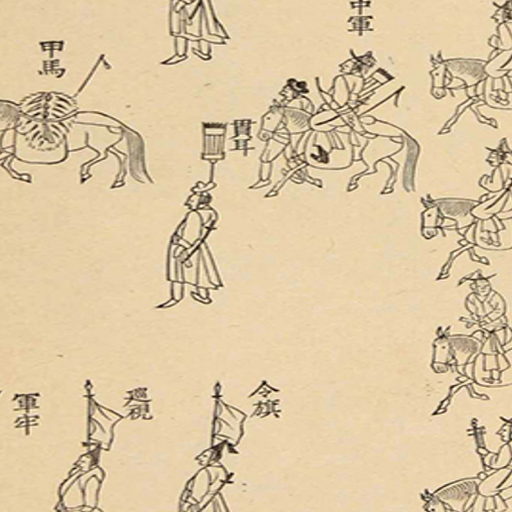 中軍
甲馬
貫耳
令旗
巡視
軍牢